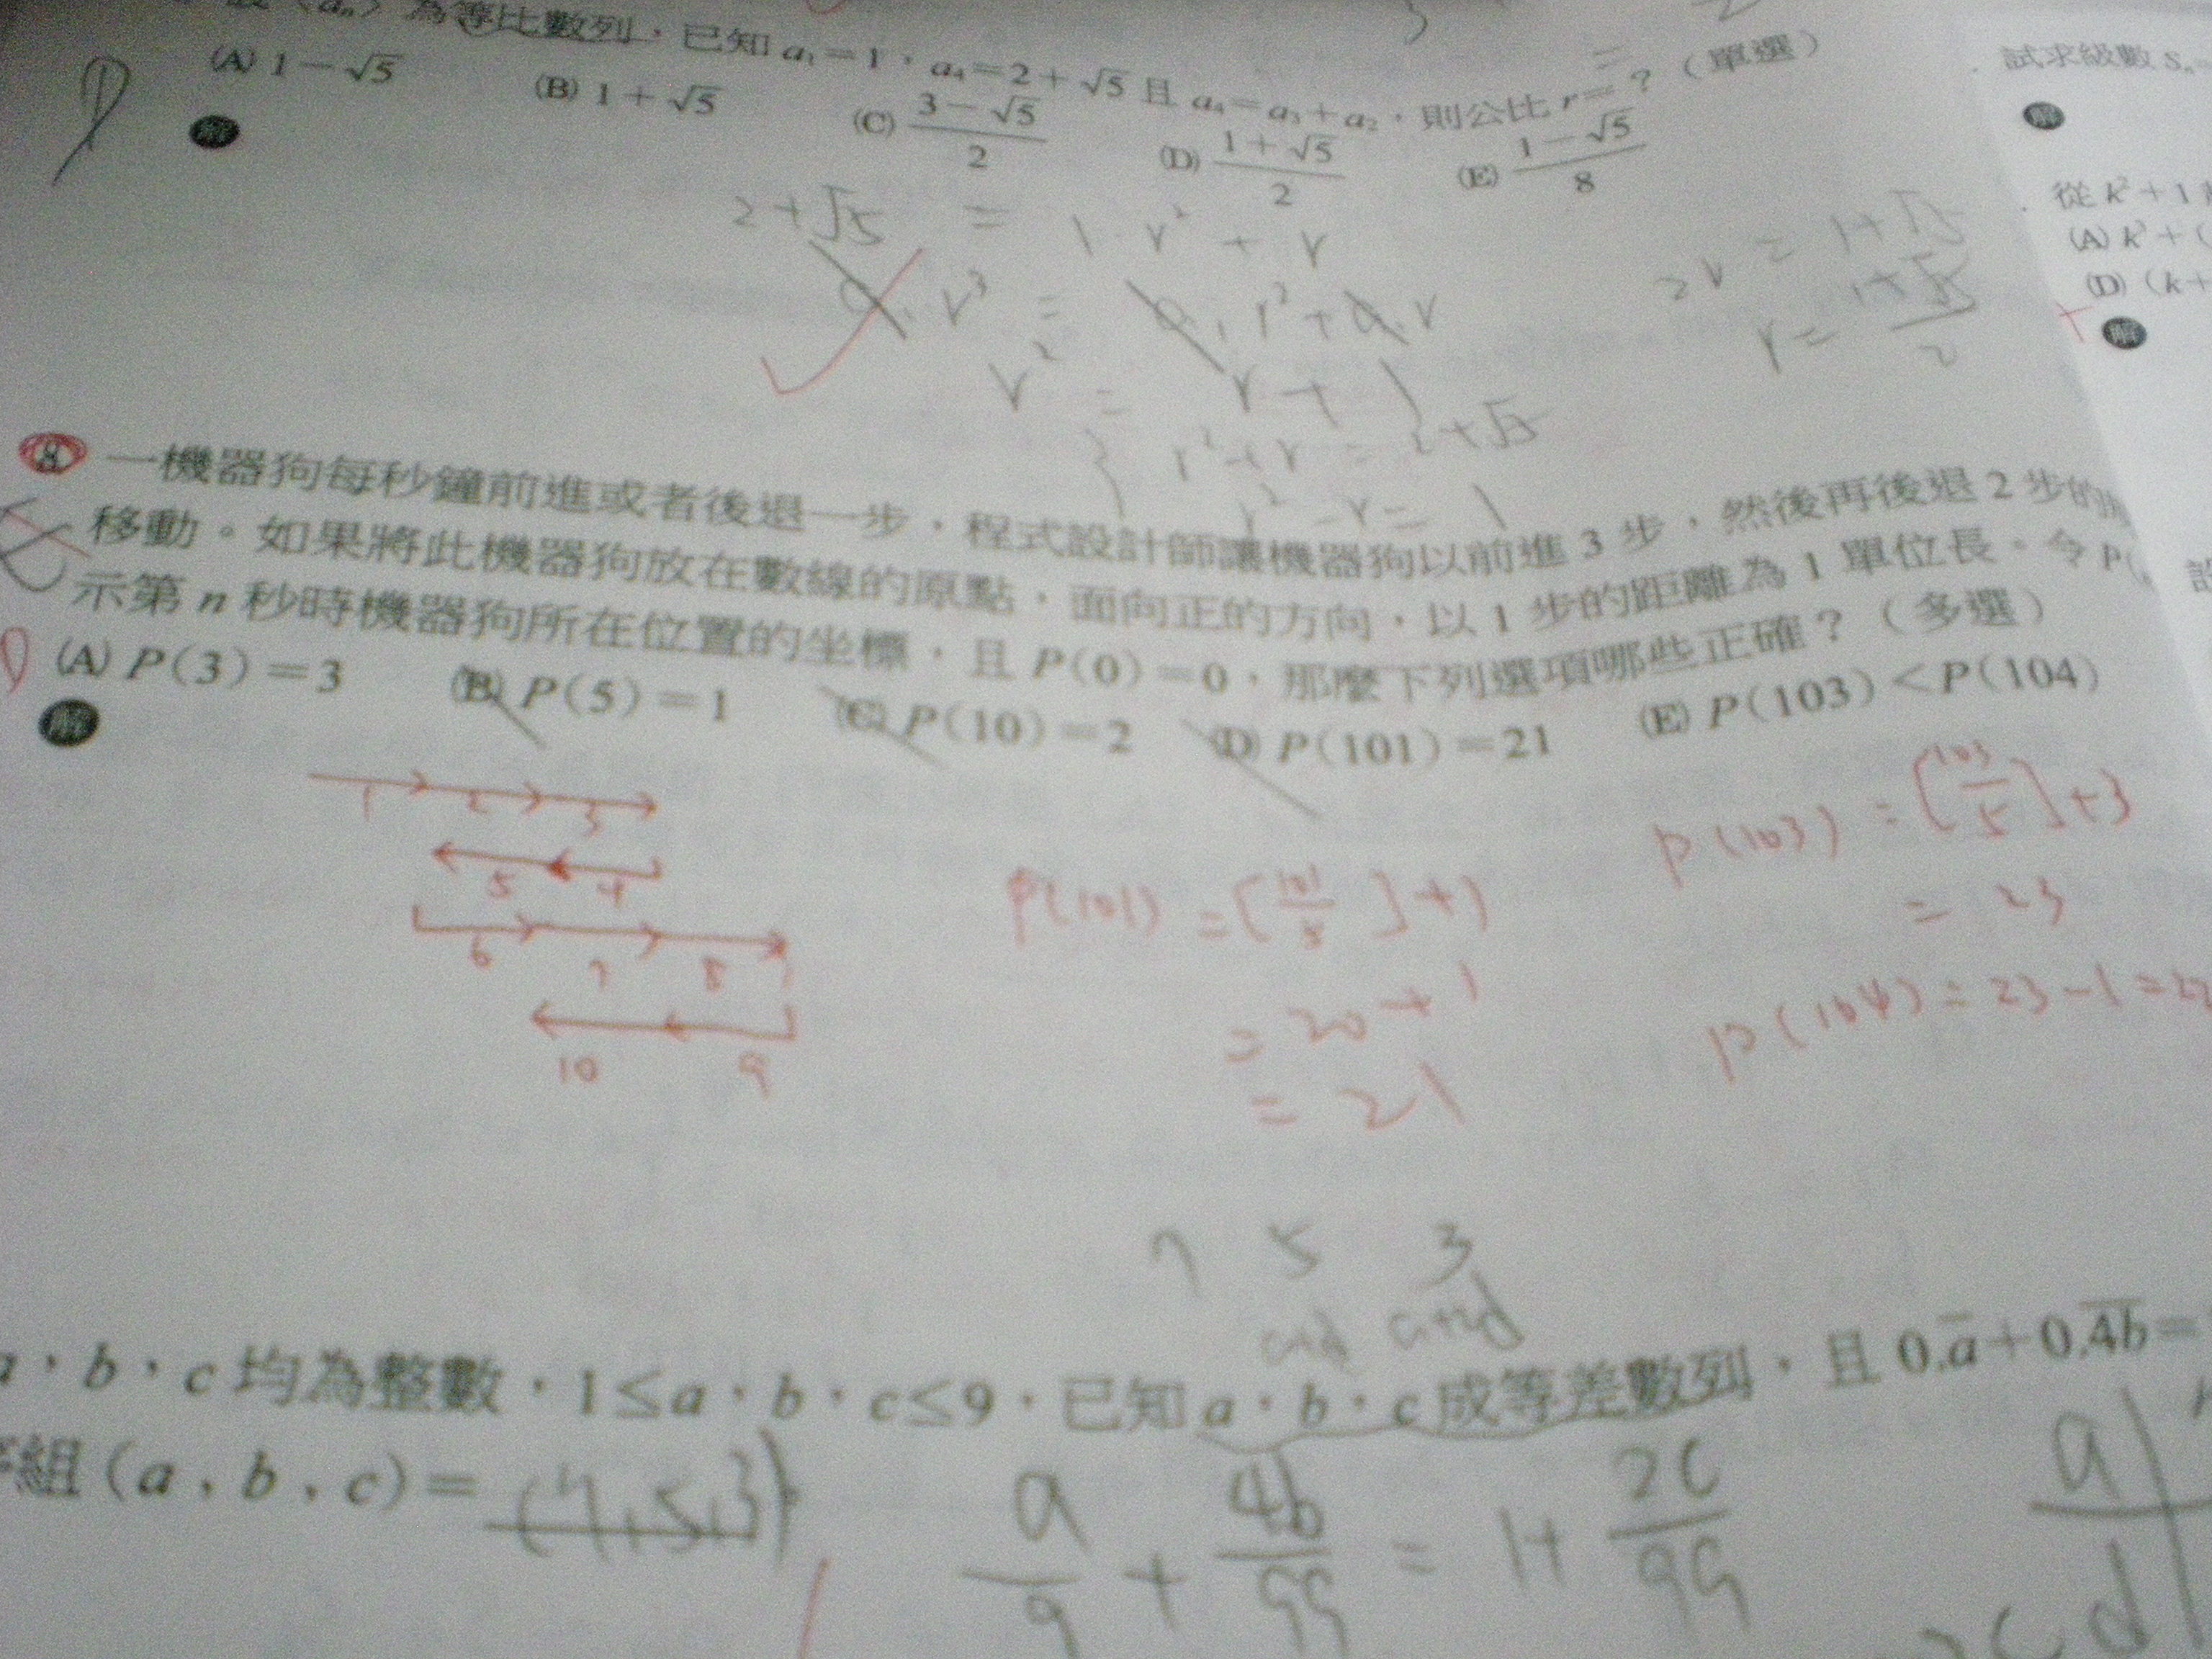 為等比數列，已知 a₁＝1，a₄＝2＋√5 且 a₄＝a₃＋a₂，則公比 r＝？（單選）
(A) 1－√5 (B) 1＋√5 (C) (3－√5)/2 (D) (1＋√5)/2 (E) (1－√5)/8
解
2+√5 = 1·r² + r
a₁r³ = a₁r²+a₁r
r² = r+1
r²+r = 2+√5
r²-r = 1
2r = 1+√5
r = (1+√5)/2
8. 一機器狗每秒鐘前進或者後退一步，程式設計師讓機器狗以前進 3 步，然後再後退 2 步的
移動。如果將此機器狗放在數線的原點，面向正的方向，以 1 步的距離為 1 單位長。令 P(
示第 n 秒時機器狗所在位置的坐標，且 P(0)＝0，那麼下列選項哪些正確？（多選）
(A) P(3)＝3 (B) P(5)＝1 (C) P(10)＝2 (D) P(101)＝21 (E) P(103)＜P(104)
解
1 2 3
5 4
6 7 8
10 9
P(101) = [101/5]+1
= 20+1
= 21
P(103) = [103/5]+3
= 23
P(104) = 23-1=22
7 5 3
a+d a+2d
a，b，c 均為整數，1≤a，b，c≤9，已知 a，b，c 成等差數列，且 0.a̅＋0.4̅b̅＝
組 (a，b，c)＝ (7,5,3)
a/9 + 4b/99 = 1+ 2c/99
試求級數 Sₙ
解
從 k²＋1
(A) k³＋(
(D)（k＋
解
設